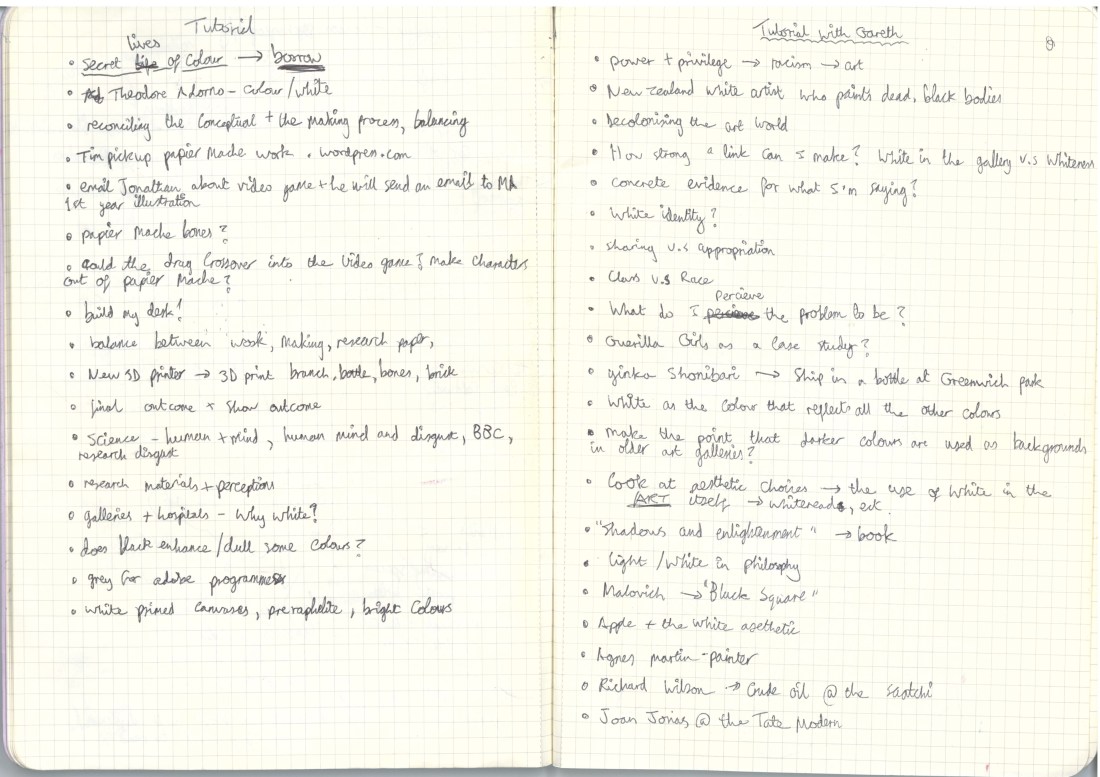 Tutorial
lives
• Secret life of Colour → borrow
• Ad Theodore Adorno - colour/white
• reconciling the conceptual + the making process, balancing
• Tim pickup papier mache work . wordpress.com
• email Jonathan about video game + he will send an email to MA
1st year illustration
• papier mache bones?
• could the drag crossover into the video game? make characters
out of papier mache?
• build my desk!
• balance between work, making, research paper,
• New 3D printer → 3D print branch, bottle, bones, brick
• final outcome x show outcome
• Science - human + mind, human mind and disgust, BBC,
research disgust
• research materials + perceptions
• galleries + hospitals - why white?
• does black enhance/dull some colours?
• grey for adobe programmes
• white primed canvases, preraphelite, bright colours
Tutorial with Gareth
• power + privilege → racism → art
• New zealand white artist who paints dead, black bodies
• Decolonising the art world
• How strong a link can I make? White in the gallery v.s Whiteness
• concrete evidence for what I'm saying?
• White identity?
• sharing v.s appropriation
• Class v.s Race
percieve
• What do I the problem to be?
• Guerilla Girls as a case study?
• yinka Shonibari → Ship in a bottle at Greenwich park
• White as the colour that reflects all the other colours
• make the point that darker colours are used as backgrounds
in older art galleries?
• Look at aesthetic choices → the use of white in the
ART itself → whitereads, ect.
• "Shadows and enlightenment" → book
• light/white in philosophy
• Malovich → "Black Square"
• Apple + the white asethetic
• Agnes martin - painter
• Richard Wilson → Crude oil @ the saatchi
• Joan Jonas @ the Tate Modern